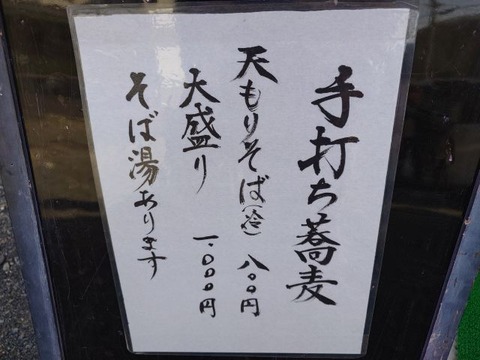 手打ち蕎麦
天もりそば(冷) 八〇〇円
大盛り 一、〇〇〇円
そば湯あります